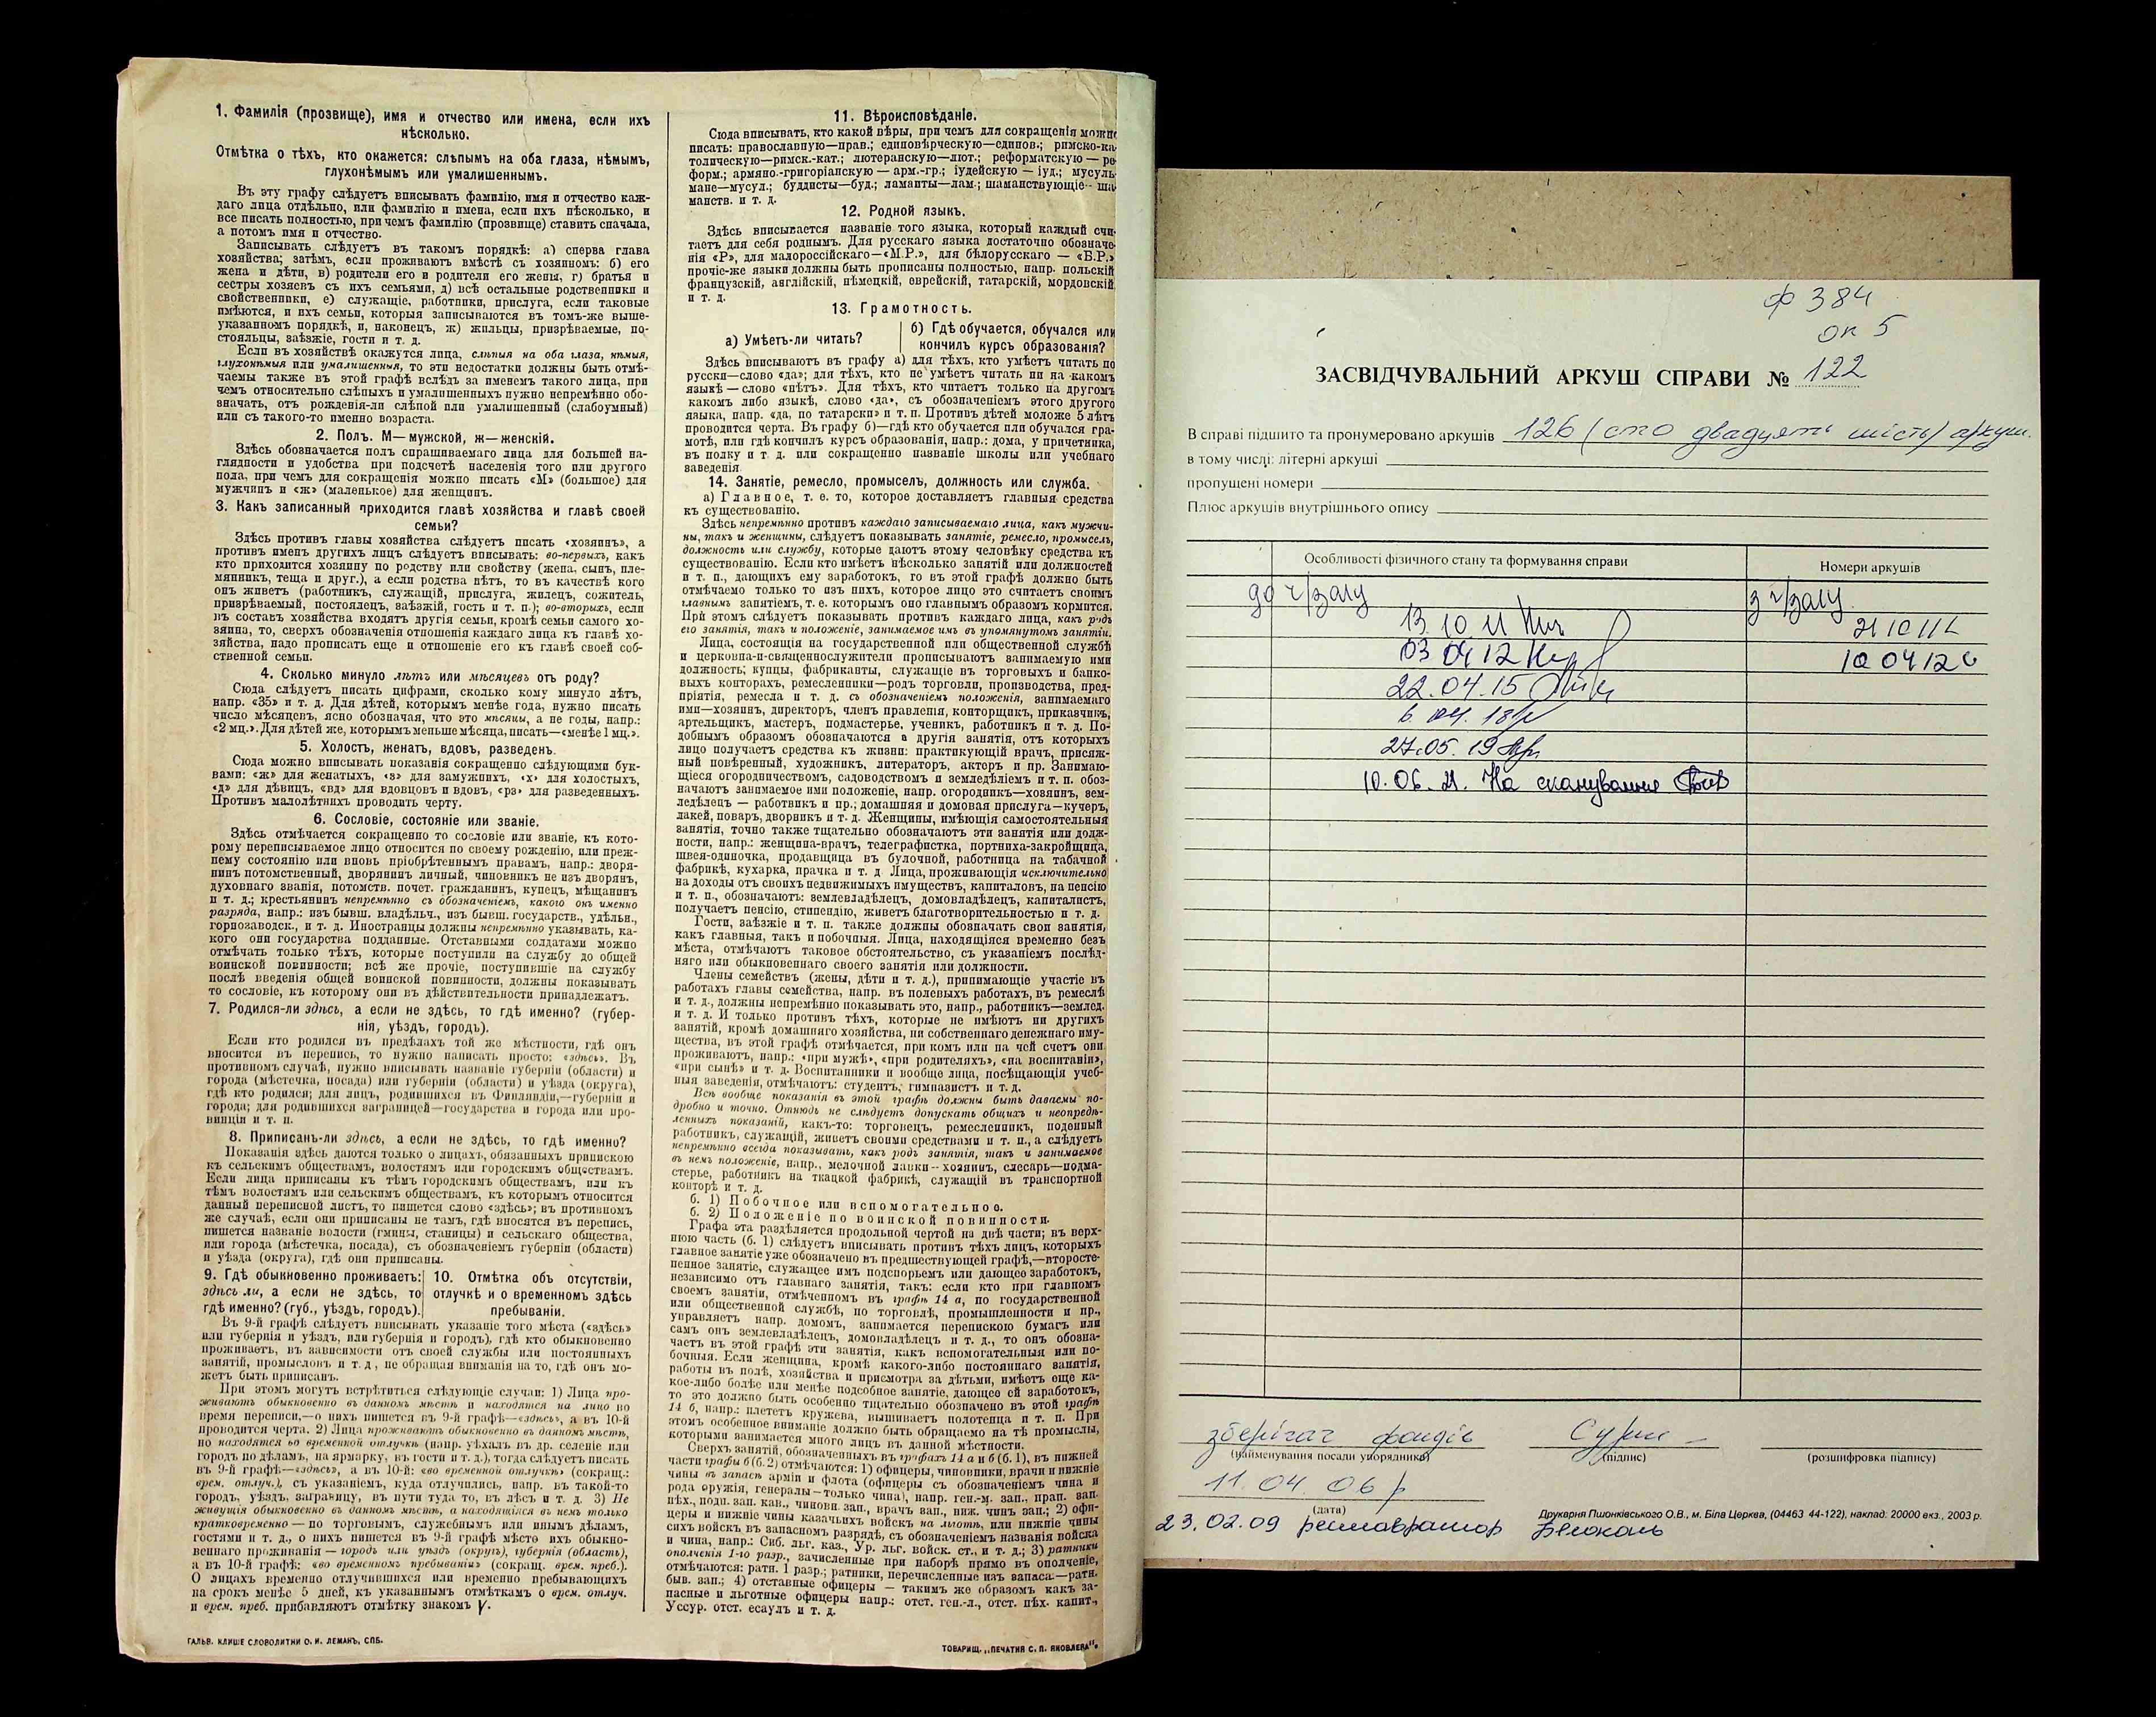 1. Фамилія (прозвище), имя и отчество или имена, если ихъ
нѣсколько.
Отмѣтка о тѣхъ, кто окажется: слѣпымъ на оба глаза, нѣмымъ,
глухонѣмымъ или умалишеннымъ.
Въ эту графу слѣдуетъ вписывать фамилію, имя и отчество каж-
даго лица отдѣльно, или фамилію и имена, если ихъ нѣсколько, и
все писать полностью, при чемъ фамилію (прозвище) ставить сначала,
а потомъ имя и отчество.
Записывать слѣдуетъ въ такомъ порядкѣ: а) сперва глава
хозяйства; затѣмъ, если проживаютъ вмѣстѣ съ хозяиномъ: б) его
жена и дѣти, в) родители его и родители его жены, г) братья и
сестры хозяевъ съ ихъ семьями, д) всѣ остальные родственники и
свойственники, е) служащіе, работники, прислуга, если таковые
имѣются, и ихъ семьи, которыя записываются въ томъ-же выше-
указанномъ порядкѣ, и, наконецъ, ж) жильцы, призрѣваемые, по-
стояльцы, заѣзжіе, гости и т. д.
Если въ хозяйствѣ окажутся лица, слѣпыя на оба глаза, нѣмыя,
глухонѣмыя или умалишенныя, то эти недостатки должны быть отмѣ-
чаемы также въ этой графѣ вслѣдъ за именемъ такого лица, при
чемъ относительно слѣпыхъ и умалишенныхъ нужно непремѣнно обо-
значать, отъ рожденія-ли слѣпой или умалишенный (слабоумный)
или съ такого-то именно возраста.
2. Полъ. М—мужской, ж—женскій.
Здѣсь обозначается полъ спрашиваемаго лица для большей на-
глядности и удобства при подсчетѣ населенія того или другого
пола, при чемъ для сокращенія можно писать «М» (большое) для
мужчинъ и «ж» (маленькое) для женщинъ.
3. Какъ записанный приходится главѣ хозяйства и главѣ своей
семьи?
Здѣсь противъ главы хозяйства слѣдуетъ писать «хозяинъ», а
противъ именъ другихъ лицъ слѣдуетъ вписывать: во-первыхъ, какъ
кто приходится хозяину по родству или свойству (жена, сынъ, пле-
мянникъ, теща и друг.), а если родства нѣтъ, то въ качествѣ кого
онъ живетъ (работникъ, служащій, прислуга, жилецъ, сожитель,
призрѣваемый, постоялецъ, заѣзжій, гость и т. п.); во-вторыхъ, если
въ составъ хозяйства входятъ другія семьи, кромѣ семьи самого хо-
зяина, то, сверхъ обозначенія отношенія каждаго лица къ главѣ хо-
зяйства, надо прописать еще и отношеніе его къ главѣ своей соб-
ственной семьи.
4. Сколько минуло лѣтъ или мѣсяцевъ отъ роду?
Сюда слѣдуетъ писать цифрами, сколько кому минуло лѣтъ,
напр. «35» и т. д. Для дѣтей, которымъ менѣе года, нужно писать
число мѣсяцевъ, ясно обозначая, что это мѣсяцы, а не годы, напр.:
«2 мц.». Для дѣтей же, которымъ меньше мѣсяца, писать—«менѣе 1 мц.».
5. Холостъ, женатъ, вдовъ, разведенъ.
Сюда можно вписывать показанія сокращенно слѣдующими бук-
вами: «ж» для женатыхъ, «з» для замужнихъ, «х» для холостыхъ,
«д» для дѣвицъ, «вд» для вдовцовъ и вдовъ, «рз» для разведенныхъ.
Противъ малолѣтнихъ проводить черту.
6. Сословіе, состояніе или званіе.
Здѣсь отмѣчается сокращенно то сословіе или званіе, къ кото-
рому переписываемое лицо относится по своему рожденію, или преж-
нему состоянію или вновь пріобрѣтеннымъ правамъ, напр.: дворя-
нинъ потомственный, дворянинъ личный, чиновникъ не изъ дворянъ,
духовнаго званія, потомств. почет. гражданинъ, купецъ, мѣщанинъ
и т. д.; крестьянинъ непремѣнно съ обозначеніемъ, какого онъ именно
разряда, напр.: изъ бывш. владѣльч., изъ бывш. государств., удѣльн.,
горнозаводск., и т. д. Иностранцы должны непремѣнно указывать, ка-
кого они государства подданные. Отставными солдатами можно
отмѣчать только тѣхъ, которые поступили на службу до общей
воинской повинности; всѣ же прочіе, поступившіе на службу
послѣ введенія общей воинской повинности, должны показывать
то сословіе, къ которому они въ дѣйствительности принадлежатъ.
7. Родился-ли здѣсь, а если не здѣсь, то гдѣ именно? (губер-
нія, уѣздъ, городъ).
Если кто родился въ предѣлахъ той же мѣстности, гдѣ онъ
вносится въ перепись, то нужно написать просто: «здѣсь». Въ
противномъ случаѣ, нужно вписывать названіе губерніи (области) и
города (мѣстечка, посада) или губерніи (области) и уѣзда (округа),
гдѣ кто родился; для лицъ, родившихся въ Финляндіи,—губерніи и
города; для родившихся заграницей—государства и города или про-
винціи и т. п.
8. Приписанъ-ли здѣсь, а если не здѣсь, то гдѣ именно?
Показанія здѣсь даются только о лицахъ, обязанныхъ припискою
къ сельскимъ обществамъ, волостямъ или городскимъ обществамъ.
Если лица приписаны къ тѣмъ городскимъ обществамъ, или къ
тѣмъ волостямъ или сельскимъ обществамъ, къ которымъ относится
данный переписной листъ, то пишется слово «здѣсь»; въ противномъ
же случаѣ, если они приписаны не тамъ, гдѣ вносятся въ перепись,
пишется названіе волости (гмины, станицы) и сельскаго общества,
или города (мѣстечка, посада), съ обозначеніемъ губерніи (области)
и уѣзда (округа), гдѣ они приписаны.
9. Гдѣ обыкновенно проживаетъ:
здѣсь ли, а если не здѣсь, то
гдѣ именно? (губ., уѣздъ, городъ).
10. Отмѣтка объ отсутствіи,
отлучкѣ и о временномъ здѣсь
пребываніи.
Въ 9-й графѣ слѣдуетъ вписывать указаніе того мѣста («здѣсь»
или губернія и уѣздъ, или губернія и городъ), гдѣ кто обыкновенно
проживаетъ, въ зависимости отъ своей службы или постоянныхъ
занятій, промысловъ и т. д., не обращая вниманія на то, гдѣ онъ мо-
жетъ быть приписанъ.
При этомъ могутъ встрѣтиться слѣдующіе случаи: 1) Лица про-
живаютъ обыкновенно въ данномъ мѣстѣ и находятся на лицо во
время переписи,—о нихъ пишется въ 9-й графѣ—«здѣсь», а въ 10-й
проводится черта. 2) Лица проживаютъ обыкновенно въ данномъ мѣстѣ,
но находятся во временной отлучкѣ (напр. уѣхалъ въ др. селеніе или
городъ по дѣламъ, на ярмарку, въ гости и т. д.), тогда слѣдуетъ писать
въ 9-й графѣ—«здѣсь», а въ 10-й: «во временной отлучкѣ» (сокращ.:
врем. отлуч.), съ указаніемъ, куда отлучились, напр. въ такой-то
городъ, уѣздъ, заграницу, въ пути туда то, въ лѣсъ и т. д. 3) Не
живущія обыкновенно въ данномъ мѣстѣ, а находящіяся въ немъ только
кратковременно — по торговымъ, служебнымъ или инымъ дѣламъ,
гостями и т. д., о нихъ пишется въ 9-й графѣ мѣсто ихъ обыкно-
веннаго проживанія — городъ или уѣздъ (округъ), губернія (область),
а въ 10-й графѣ: «во временномъ пребываніи» (сокращ. врем. преб.).
О лицахъ временно отлучившихся или временно пребывающихъ
на срокъ менѣе 5 дней, къ указаннымъ отмѣткамъ о врем. отлуч.
и врем. преб. прибавляютъ отмѣтку знакомъ V.
ГАЛЬВ. КЛИШЕ СЛОВОЛИТНИ О. И. ЛЕМАНЪ, СПБ.
11. Вѣроисповѣданіе.
Сюда вписывать, кто какой вѣры, при чемъ для сокращенія можно
писать: православную—прав.; единовѣрческую—единов.; римско-ка-
толическую—римск.-кат.; лютеранскую—лют.; реформатскую — ре-
форм.; армяно.-григоріанскую — арм.-гр.; іудейскую — іуд.; мусуль-
мане—мусул.; буддисты—буд.; ламаиты—лам.; шаманствующіе—ша-
манств. и т. д.
12. Родной языкъ.
Здѣсь вписывается названіе того языка, который каждый счи-
таетъ для себя роднымъ. Для русскаго языка достаточно обозначе-
нія «Р», для малороссійскаго—«М.Р.», для бѣлорусскаго — «Б.Р.»
прочіе-же языки должны быть прописаны полностью, напр. польскій
французскій, англійскій, нѣмецкій, еврейскій, татарскій, мордовскій
и т. д.
13. Грамотность.
а) Умѣетъ-ли читать?
б) Гдѣ обучается, обучался или
кончилъ курсъ образованія?
Здѣсь вписываютъ въ графу а) для тѣхъ, кто умѣетъ читать по
русски—слово «да»; для тѣхъ, кто не умѣетъ читать ни на какомъ
языкѣ — слово «нѣтъ». Для тѣхъ, кто читаетъ только на другомъ
какомъ либо языкѣ, слово «да», съ обозначеніемъ этого другого
языка, напр. «да, по татарски» и т. п. Противъ дѣтей моложе 5 лѣтъ
проводится черта. Въ графу б)—гдѣ кто обучается или обучался гра-
мотѣ, или гдѣ кончилъ курсъ образованія, напр.: дома, у причетника,
въ полку и т. д. или сокращенно названіе школы или учебнаго
заведенія
14. Занятіе, ремесло, промыселъ, должность или служба.
а) Главное, т. е. то, которое доставляетъ главныя средства
къ существованію.
Здѣсь непремѣнно противъ каждаго записываемаго лица, какъ мужчи-
ны, такъ и женщины, слѣдуетъ показывать занятіе, ремесло, промыселъ,
должность или службу, которые даютъ этому человѣку средства къ
существованію. Если кто имѣетъ нѣсколько занятій или должностей
и т. п., дающихъ ему заработокъ, то въ этой графѣ должно быть
отмѣчаемо только то изъ нихъ, которое лицо это считаетъ своимъ
главнымъ занятіемъ, т. е. которымъ оно главнымъ образомъ кормится.
При этомъ слѣдуетъ показывать противъ каждаго лица, какъ родъ
его занятія, такъ и положеніе, занимаемое имъ въ упомянутомъ занятіи.
Лица, состоящія на государственной или общественной службѣ
и церковно-и-священнослужители прописываютъ занимаемую ими
должность; купцы, фабриканты, служащіе въ торговыхъ и банко-
выхъ конторахъ, ремесленники—родъ торговли, производства, пред-
пріятія, ремесла и т. д. съ обозначеніемъ положенія, занимаемаго
ими—хозяинъ, директоръ, членъ правленія, конторщикъ, приказчикъ,
артельщикъ, мастеръ, подмастерье, ученикъ, работникъ и т. д. По-
добнымъ образомъ обозначаются и другія занятія, отъ которыхъ
лицо получаетъ средства къ жизни: практикующій врачъ, присяж-
ный повѣренный, художникъ, литераторъ, актеръ и пр. Занимаю-
щіеся огородничествомъ, садоводствомъ и земледѣліемъ и т. п. обоз-
начаютъ занимаемое ими положеніе, напр. огородникъ—хозяинъ, зем-
ледѣлецъ — работникъ и пр.; домашняя и домовая прислуга—кучеръ,
лакей, поваръ, дворникъ и т. д. Женщины, имѣющія самостоятельныя
занятія, точно также тщательно обозначаютъ эти занятія или долж-
ности, напр.: женщина-врачъ, телеграфистка, портниха-закройщица,
швея-одиночка, продавщица въ булочной, работница на табачной
фабрикѣ, кухарка, прачка и т. д. Лица, проживающія исключительно
на доходы отъ своихъ недвижимыхъ имуществъ, капиталовъ, на пенсію
и т. п., обозначаютъ: землевладѣлецъ, домовладѣлецъ, капиталистъ,
получаетъ пенсію, стипендію, живетъ благотворительностью и т. д.
Гости, заѣзжіе и т. п. также должны обозначать свои занятія,
какъ главныя, такъ и побочныя. Лица, находящіяся временно безъ
мѣста, отмѣчаютъ таковое обстоятельство, съ указаніемъ послѣд-
няго или обыкновеннаго своего занятія или должности.
Члены семействъ (жены, дѣти и т. д.), принимающіе участіе въ
работахъ главы семейства, напр. въ полевыхъ работахъ, въ ремеслѣ
и т. д., должны непремѣнно показывать это, напр., работникъ—землед.
и т. д. И только противъ тѣхъ, которые не имѣютъ ни другихъ
занятій, кромѣ домашняго хозяйства, ни собственнаго денежнаго иму-
щества, въ этой графѣ отмѣчается, при комъ или на чей счетъ они
проживаютъ, напр.: «при мужѣ», «при родителяхъ», «на воспитаніи»,
«при сынѣ» и т. д. Воспитанники и вообще лица, посѣщающія учеб-
ныя заведенія, отмѣчаютъ: студентъ, гимназистъ и т. д.
Всѣ вообще показанія въ этой графѣ должны быть даваемы по-
дробно и точно. Отнюдь не слѣдуетъ допускать общихъ и неопредѣ-
ленныхъ показаній, какъ-то: торговецъ, ремесленникъ, поденный
работникъ, служащій, живетъ своими средствами и т. п., а слѣдуетъ
непремѣнно всегда показывать, какъ родъ занятія, такъ и занимаемое
въ немъ положеніе, напр., мелочной лавки—хозяинъ, слесарь—подма-
стерье, работникъ на ткацкой фабрикѣ, служащій въ транспортной
конторѣ и т. д.
б. 1) Побочное или вспомогательное.
б. 2) Положеніе по воинской повинности.
Графа эта раздѣляется продольной чертой на двѣ части; въ верх-
нюю часть (б. 1) слѣдуетъ вписывать противъ тѣхъ лицъ, которыхъ
главное занятіе уже обозначено въ предшествующей графѣ,—второсте-
пенное занятіе, служащее имъ подспорьемъ или дающее заработокъ,
независимо отъ главнаго занятія, такъ: если кто при главномъ
своемъ занятіи, отмѣченномъ въ графѣ 14 а, по государственной
или общественной службѣ, по торговлѣ, промышленности и пр.,
управляетъ напр. домомъ, занимается перепискою бумагъ или
самъ онъ землевладѣлецъ, домовладѣлецъ и т. д., то онъ обозна-
чаетъ въ этой графѣ эти занятія, какъ вспомогательныя или по-
бочныя. Если женщина, кромѣ какого-либо постояннаго занятія,
работы въ полѣ, хозяйства и присмотра за дѣтьми, имѣетъ еще ка-
кое-либо болѣе или менѣе подсобное занятіе, дающее ей заработокъ,
то это должно быть особенно тщательно обозначено въ этой графѣ
14 б, напр.: плететъ кружева, вышиваетъ полотенца и т. п. При
этомъ особенное вниманіе должно быть обращаемо на тѣ промыслы,
которыми занимается много лицъ въ данной мѣстности.
Сверхъ занятій, обозначенныхъ въ графахъ 14 а и б (б. 1), въ нижней
части графы б (б. 2) отмѣчаются: 1) офицеры, чиновники, врачи и нижніе
чины въ запасѣ арміи и флота (офицеры съ обозначеніемъ чина и
рода оружія, генералы—только чина), напр. ген.-м. зап., прап. зап.
пѣх., подп. зап. кав., чиновн. зап., врачъ зап., ниж. чинъ зап.; 2) офи-
церы и нижніе чины казачьихъ войскъ на льготѣ, или нижніе чины
сихъ войскъ въ запасномъ разрядѣ, съ обозначеніемъ названія войска
и чина, напр.: Сиб. льг. каз., Ур. льг. войск. ст., и т. д.; 3) ратники
ополченія 1-го разр., зачисленные при наборѣ прямо въ ополченіе,
отмѣчаются: ратн. 1 разр.; ратники, перечисленные изъ запаса:—ратн.
быв. зап.; 4) отставные офицеры — такимъ же образомъ какъ за-
пасные и льготные офицеры напр.: отст. ген.-л., отст. пѣх. капит.,
Уссур. отст. есаулъ и т. д.
ТОВАРИЩ. „ПЕЧАТНЯ С. П. ЯКОВЛЕВА“.
ф 384
оп 5
ЗАСВІДЧУВАЛЬНИЙ АРКУШ СПРАВИ № 122
В справі підшито та пронумеровано аркушів 126 (сто двадцять шість) аркуш.
в тому числі: літерні аркуші
пропущені номери
Плюс аркушів внутрішнього опису
Особливості фізичного стану та формування справи
Номери аркушів
до ч/залу
з ч/залу
13.10.11
21 10 11
03 04 12
10 04 12
22.04.15
6. 04. 18
27.05.19
10.06.21. На сканування
зберігач фондів
(найменування посади упорядника)
(підпис)
(розшифровка підпису)
11.04.06 р
(дата)
Друкарня Пшонківського О.В., м. Біла Церква, (04463 44-122), наклад: 20000 екз., 2003 р.
23.02.09 реставратор Білоконь